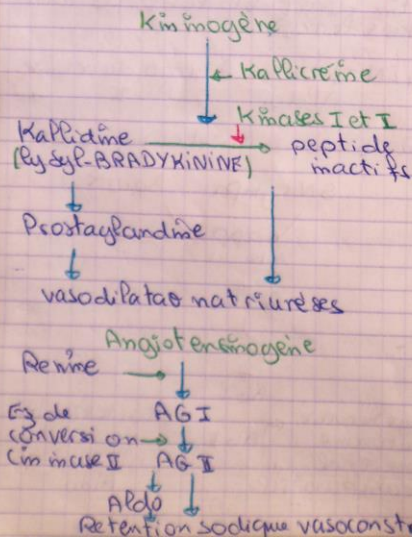 Kininogène
Kallicreine
Kinases I et I
Kallidine peptide
(lySyl-BRADYKININE) inactifs
Prostaglandine
vasodilatao natriuréses
Angiotensinogène
Renine
Ez de AGI
conversion
(ininase II AGII
Aldo
Retention sodique vasoconst